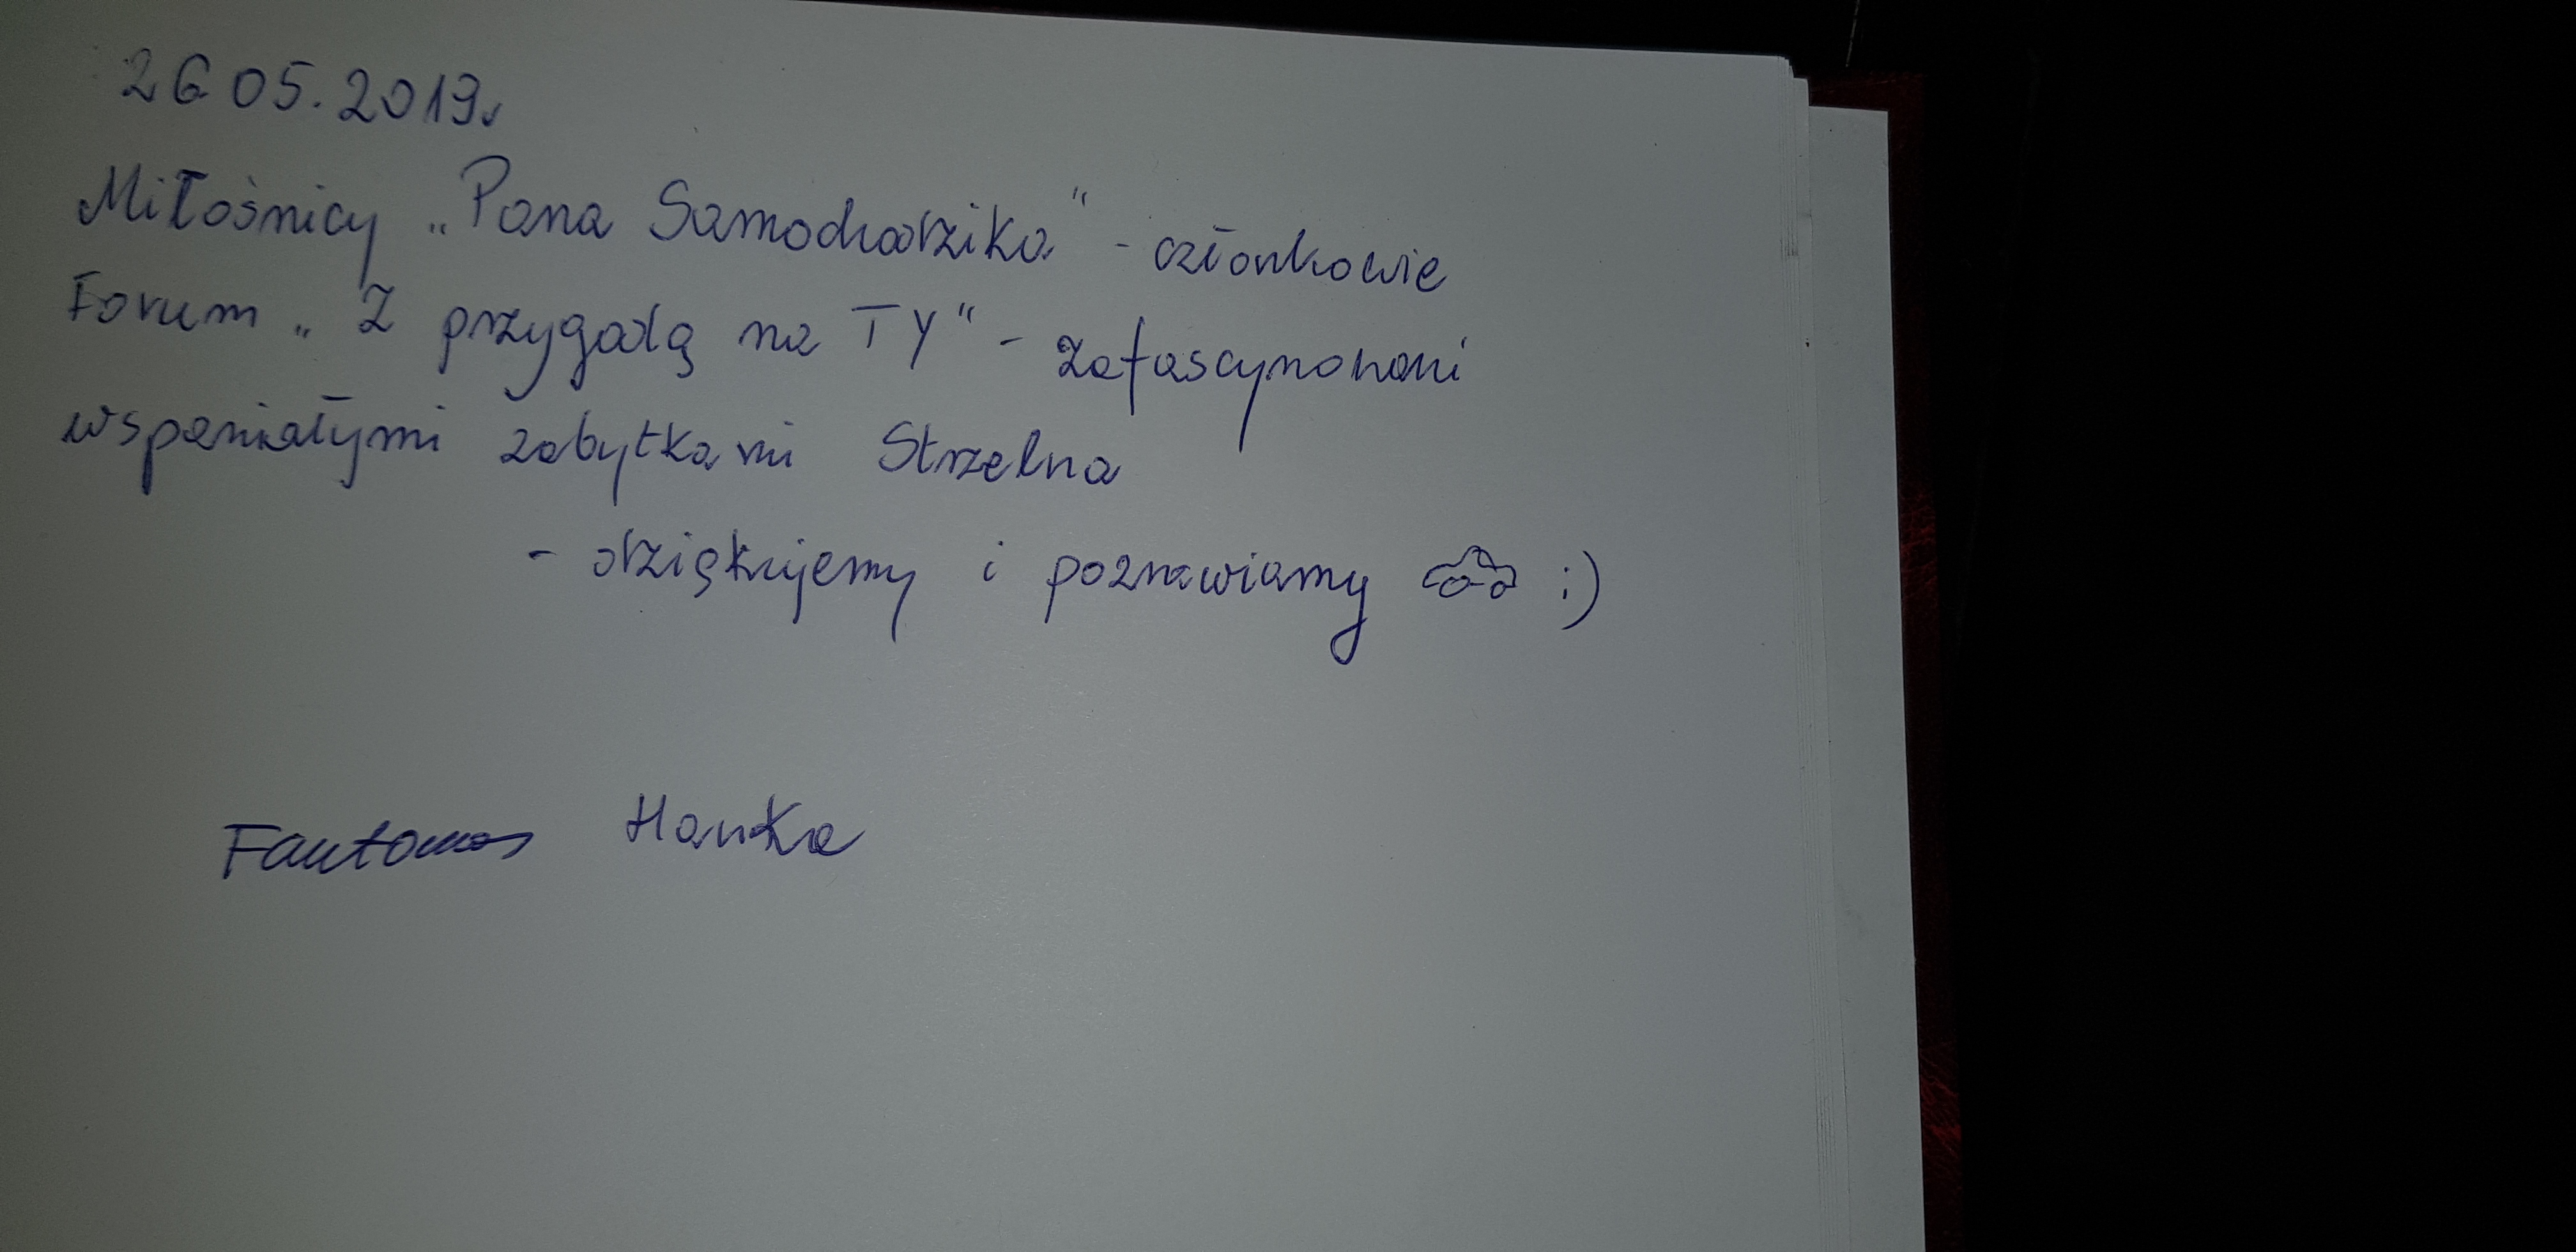 26 05.2019r
Miłośnicy „Pana Samochodzika" - członkowie
Forum „Z przygodą na TY" - zafascynowani
wspaniałymi zabytkami Strzelna
- dziękujemy i pozdrawiamy ;)
Fantomas Hanka